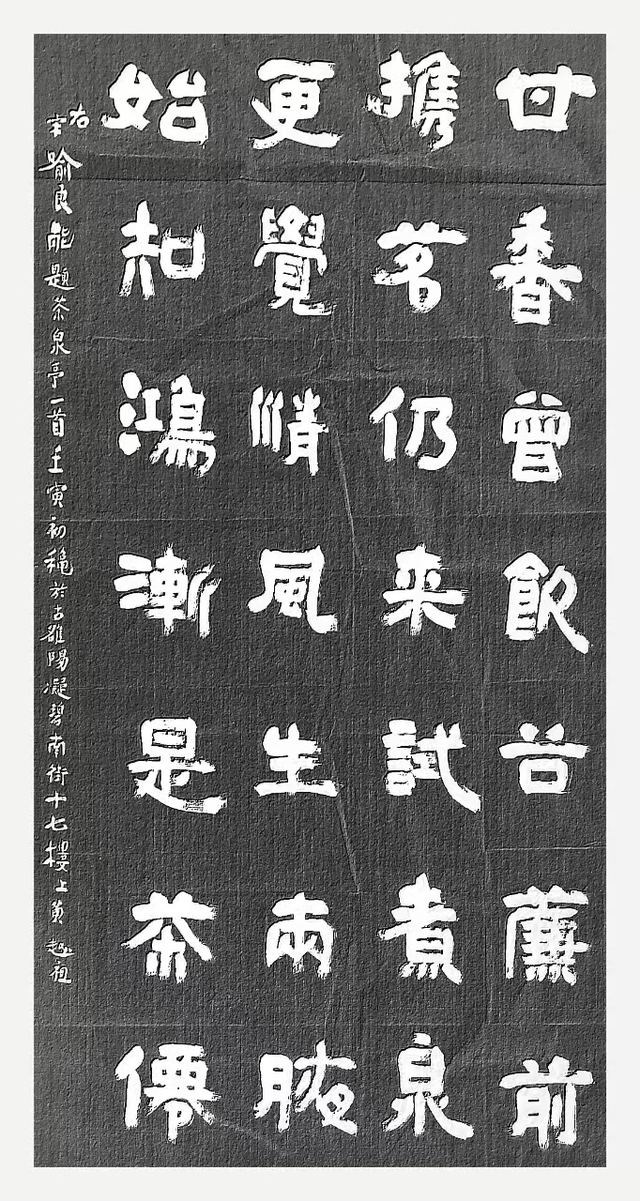 甘香曾飲谷簾前
攜茗仍来試煮泉
更覺清風生兩腋
始知鴻漸是茶僊
右宋喻良能題茶泉亭一首壬寅初穐於古雒陽凝碧南街十七樓上黄